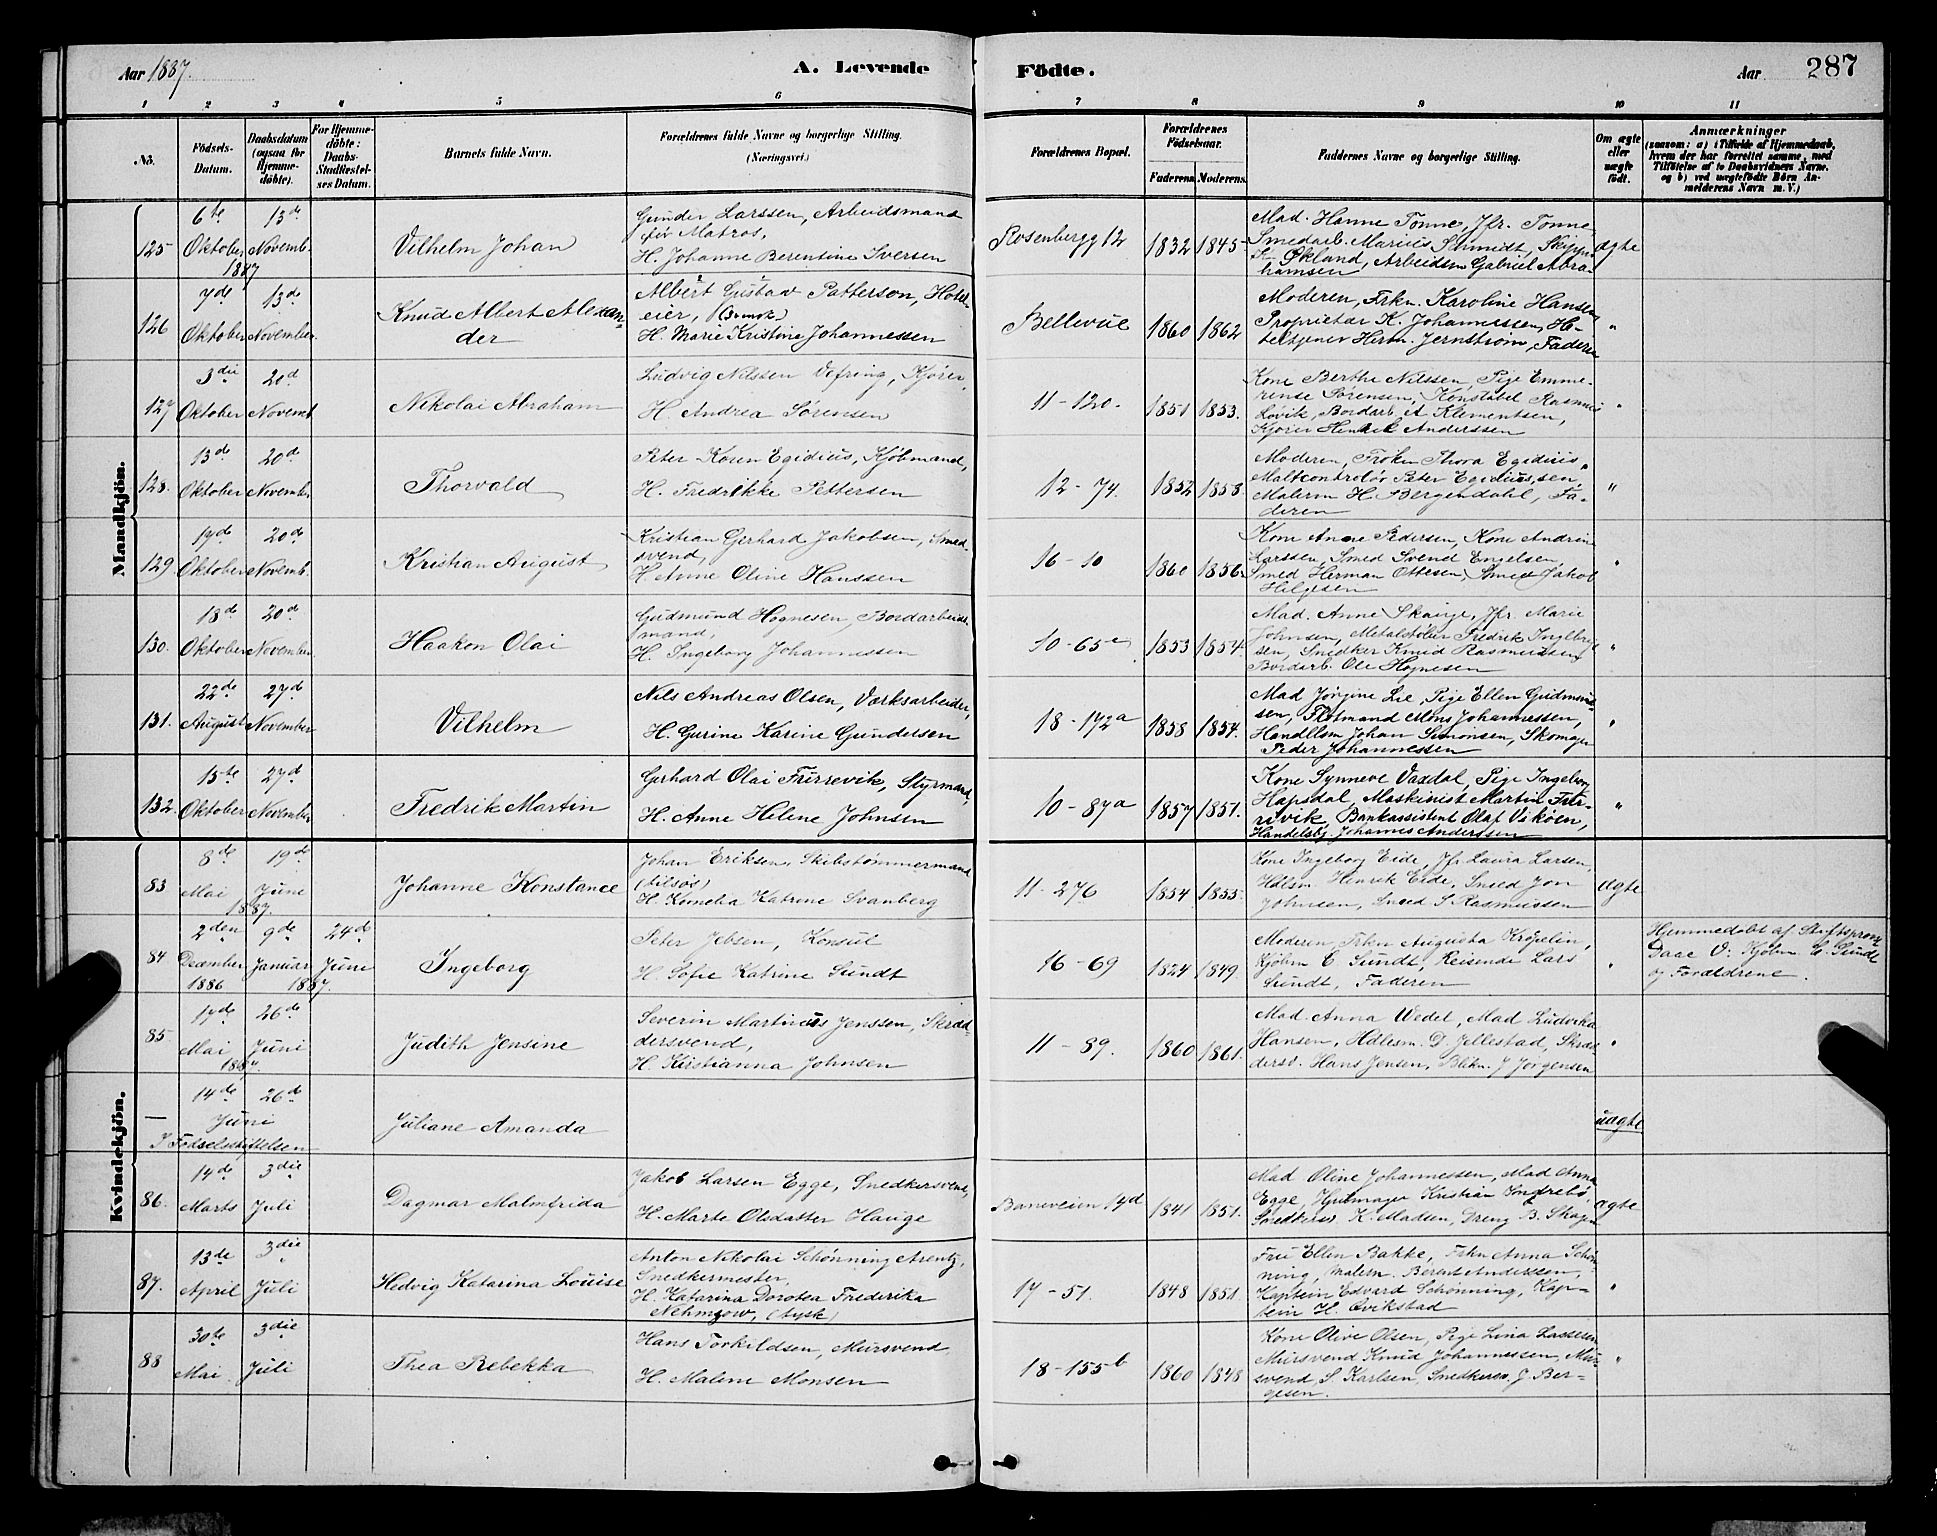 Aar 1887.
A. Levende
Födte.
Aar
287
1 2 3 4 5 6 7 8 9 10 11
No.
Födsels-
Datum.
Daabsdatum
(ogsaa for
Hjemme-
döbte).
For Hjemme-
döbte:
Daabs-
Stadfæstel-
ses Datum.
Barnets fulde Navn.
Forældrenes fulde Navne og borgerlige Stilling.
(Næringsvei.)
Forældrenes Bopæl.
Forældrenes
Födselsaar.
Faderens. Moderens.
Faddernes Navne og borgerlige Stilling.
Om ægte
eller
uægte
født.
Anmærkninger
(saasom: a) i Tilfælde af Hjemmedaab,
hvem der har forrettet samme, med
Tilføielse af to Daabsvidners Navne,
og b) ved uægtefødte Børn An-
melderens Navn m. V.)
Mandkjön.
125
6te Oktober 1887
13de Novemb.
Vilhelm Johan
Gunder Larssen, Arbeidsmand
før Matros,
H. Johanne Berentine Iversen
Rosenbergg 12
1832 1845
Mad. Hanne Tonne, Jfr. Tonne
Smedarb. Marius Schmidt, Skipp.
K. Økland, Arbeidsm Gabriel Abra-
hamsen
ægte
126
7de Oktober
13de November.
Knud Albert Alexan-
der
Albert Gustav Patterson, Hotel-
eier, (svensk)
H. Marie Kristine Johannessen
Bellevue
1860 1862
Moderen, Frkn. Karoline Hansen
Proprietær K. Johannessen, Ho-
teltjener Herm. Jernstrøm, Faderen
"
127
3die Oktober
20d Novemb
Nikolai Abraham
Ludvig Nilssen Vefring, Kjører,
H. Andrea Sørensen
11-120.
1851 1853.
Kone Berthe Nilssen, Pige Emme-
rense Sørensen, Konstabel Rasmus
Løvik, Bordarb. A Klementsen,
Kjører Henrik Anderssen
"
128.
13de Oktober
20de November
Thorvald
Peter Koren Egidius, Kjøbmand,
H. Fredrikke Pettersen
12-74.
1852 1858.
Moderen, Frøken Thora Egidius,
Maltcontrolør Peter Egidiussen,
Malerm H. Bergendahl, Fa-
deren
"
129.
17de Oktober
20de Novemb.
Kristian August
Kristian Gerhard Jakobsen, Smed-
svend,
H. Anne Oline Hanssen
16-10
1860 1856.
Kone Anne Pedersen, Kone Andrine
Larssen, Smed Svend Engelsen,
Smed Herman Ottesen, Smed Jakob
Helgesen
"
130.
18de Oktober
20de November.
Haakon Olai
Gudmund Hognesen, Bordarbeids-
mand,
H. Ingeborg Johannessen
10-65e
1853 1854.
Mad. Anne Skauge, Jfr. Marie
Johnsen, Metalstøber Fredrik Ingebrigt-
sen, Snedker Knud Rasmussen
Bordarb. Ole Hognesen
"
131.
22de August
27de November
Vilhelm
Nils Andreas Olsen, Værksarbeider,
H. Gurine Karine Gundersen
18-172a
1858 1854.
Mad Jørgine Lie, Pige Ellen Gudmund-
sen, Flotmand Mons Johannessen,
Handllsm Johan Simonsen, Skomager
Peder Johannessen
"
132.
15te Oktober
27de November
Fredrik Martin
Gerhard Olai Furrevik, Styrmand,
H. Anne Helene Johnsen
10-87a
1857 1851.
Kone Synneve Vaxdal, Pige Ingeborg
Hapsdal, Maskinist Martin Fur-
revik, Bankassistent Olaf Vikøen,
Handelsbj. Johannes Anderssen
"
Kvindekjön.
83
8de Mai 1887.
19de Juni
Johanne Konstance
Johan Eriksen, Skibstømmermand
(tilsøs)
H. Kornelia Katrine Svanberg
11-276
1854 1855.
Kone Ingeborg Eide, Jfr Laura Larsen,
Hdlsm. Henrik Eide, Smed Jon
Johnsen, Smed S Rasmussen
ægte
84
2den December 1886
9de Januar 1887.
24de Juni
Ingeborg
Peter Jebsen, Konsul
H. Sofie Katrine Sundt
16-69
1824 1849.
Moderen, Frkn Augusta Krøpelin,
Kjøbm C. Sundt, Reisende Lars
Sundt, Faderen
"
Hjemmedøbt af Stiftsprovst
Daae V: Kjøbm C. Sundt
og Forældrene.
85.
17de Mai 1887
26de Juni
Judith Jensine
Severin Martinus Jenssen, Skræd-
dersvend,
H. Kirstianna Johnsen
11-89.
1860 1861.
Mad. Anna Wedel, Mad Ludvika
Hansen, Hdlesm. D. Jellestad, Skræd-
dersv. Hans Jensen, Blikn. J Jørgensen
"
—
14de 26de
Juni
I Fødselsstiftelsen
Juliane Amanda
uægte
86.
14de Marts
3die Juli
Dagmar Malmfrida
Jakob Larsen Egge, Snedkersvend,
H. Marte Olsdatter Hauge
Baneveien 14d
1841 1851.
Mad Oline Johannessen, Mad Anna
Egge, Hjulmager Kristian Søndrebø,
Snedkersv K. Madsen, Dreng B. Skagen
ægte
87.
13de April
3die Juli
Hedvig Katarina Louise
Anton Nikolai Schønning Arentz,
Snedkermester,
H. Katarina Dorotea Frederika
Nehmzow, (tysk)
17-51.
1848 1851
Fru Ellen Bakke, Frkn Anna Schøn-
ning, Malerm. Berent Anderssen,
Kaptein Edvard Schønning, Kap-
tein H. Qvikstad
"
88
30te Mai.
3die Juli
Thea Rebekka
Hans Torkildsen, Mursvend
H. Malene Monsen
18-155b
1860 1848
Kone Olive Olsen, Pige Lina Lassesen
Mursvend Knud Johannessen, Mur-
svend S. Karlsen, Snedkersv. J. Ber-
gesen.
"